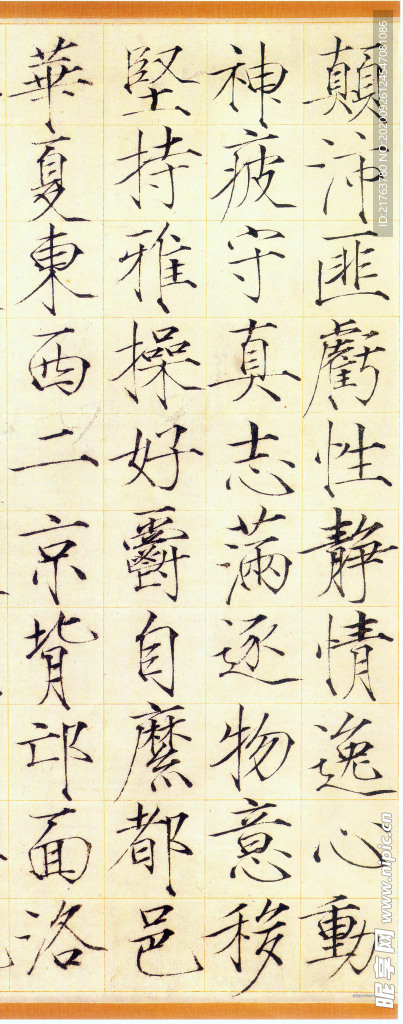 顛沛匪虧性靜情逸心動
神疲守真志滿逐物意移
堅持雅操好爵自縻都邑
華夏東西二京背邙面洛
ID:21763760 NO:20200926124547081086
昵享网 www.nipic.cn